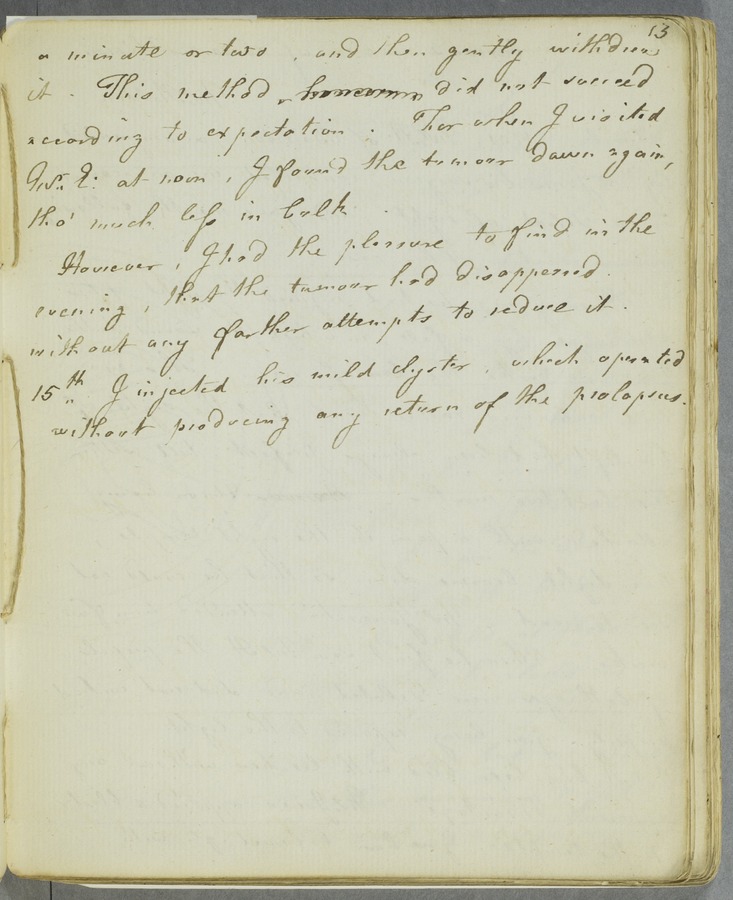 13
a minute or two, and then gently withdrew
it. This method, however, did not succeed
according to expectation. For when I visited
at noon, I found the tumour down again,
tho' much less in bulk.
However, I had the pleasure to find in the
evening, that the tumour had disappeared.
without any farther attempts to reduce it.
15th I injected his mild clyster, which operated
without producing any return of the prolapsus.